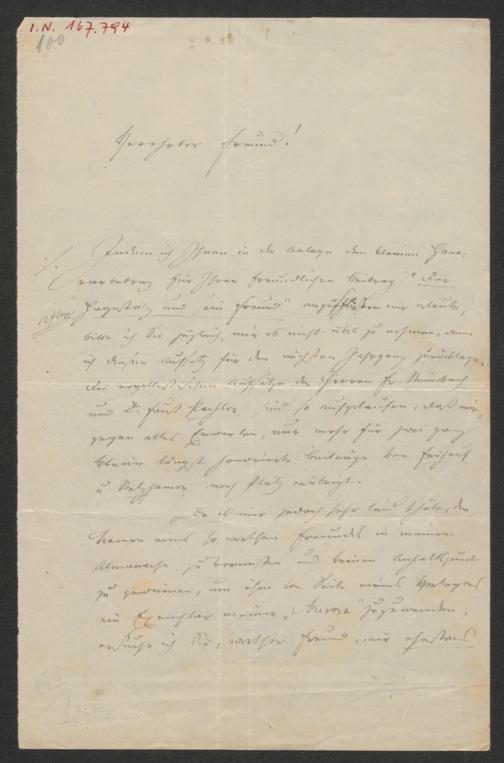 I.N. 167.794
100
Verehrter Freund!
Indem ich Ihnen in der Anlage den kleinen Hono-
rarbetrag für Ihren freundlichen Beitrag "Der
Hagestolz und sein Freund" mir erlaube,
bitte ich Sie zugleich, mir es nicht übel zu nehmen, wenn
ich diesen Aufsatz für den nächsten Jahrgang zurücklege.
Die novellistischen Aufsätze der Herren Fr. Steinebach
und Dr. Faust Pachler, sind so ausgelaufen, daß mir,
gegen alles Erwarten, nur mehr für zwei ganz
kleine längst honorirte Beiträge von
u. Stelzhamer noch Platz erübrigt.
Da es mir jedoch sehr leid thäte, den
Namen eines so werthen Freundes in meinem
Almanache zu vermissen und keinen Anhaltspunct
zu gewinnen, um ihm von Seite meines Verlegers
ein Exemplar meiner "Aurora" zuzuwenden,
ersuche ich Sie, werther Freund, mir ehestens